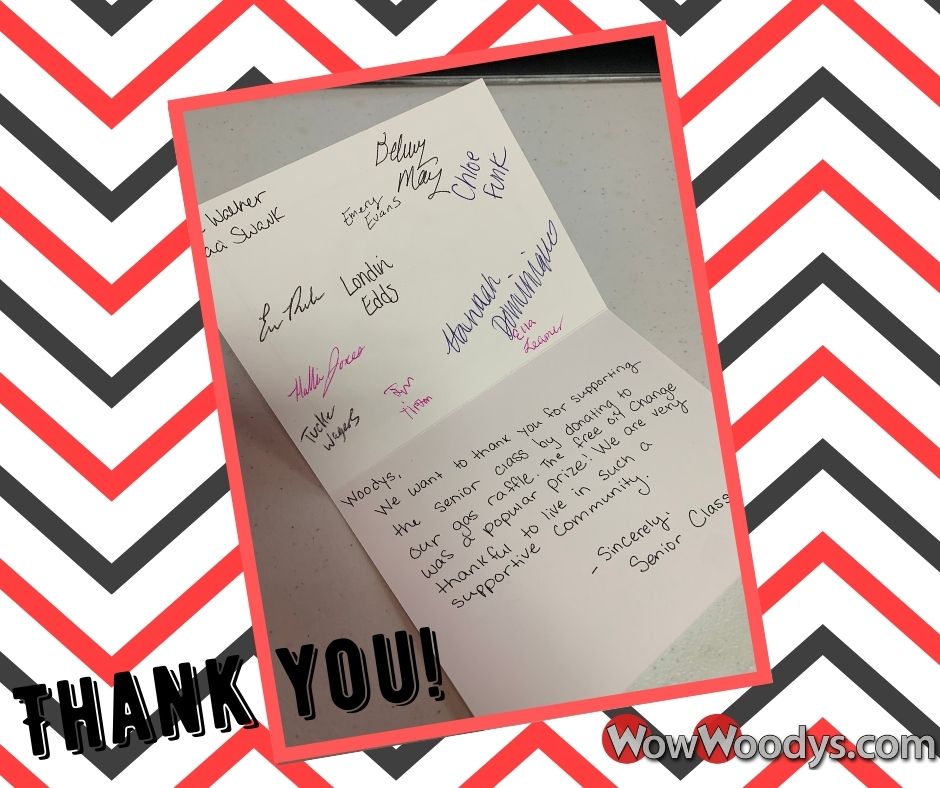 Belwy
May
Chloe
Funk
Emery
Evans
Washer
Swank
Londin
Edds
Hannah
Dominique
Ella
Jones
Tucker
Wagers
Woodys,
We want to thank you for supporting
the senior class by donating to
our gas raffle. The free oil change
was a popular prize! We are very
thankful to live in such a
supportive community.
- Sincerely,
Senior Class
THANK YOU!
WowWoodys.com